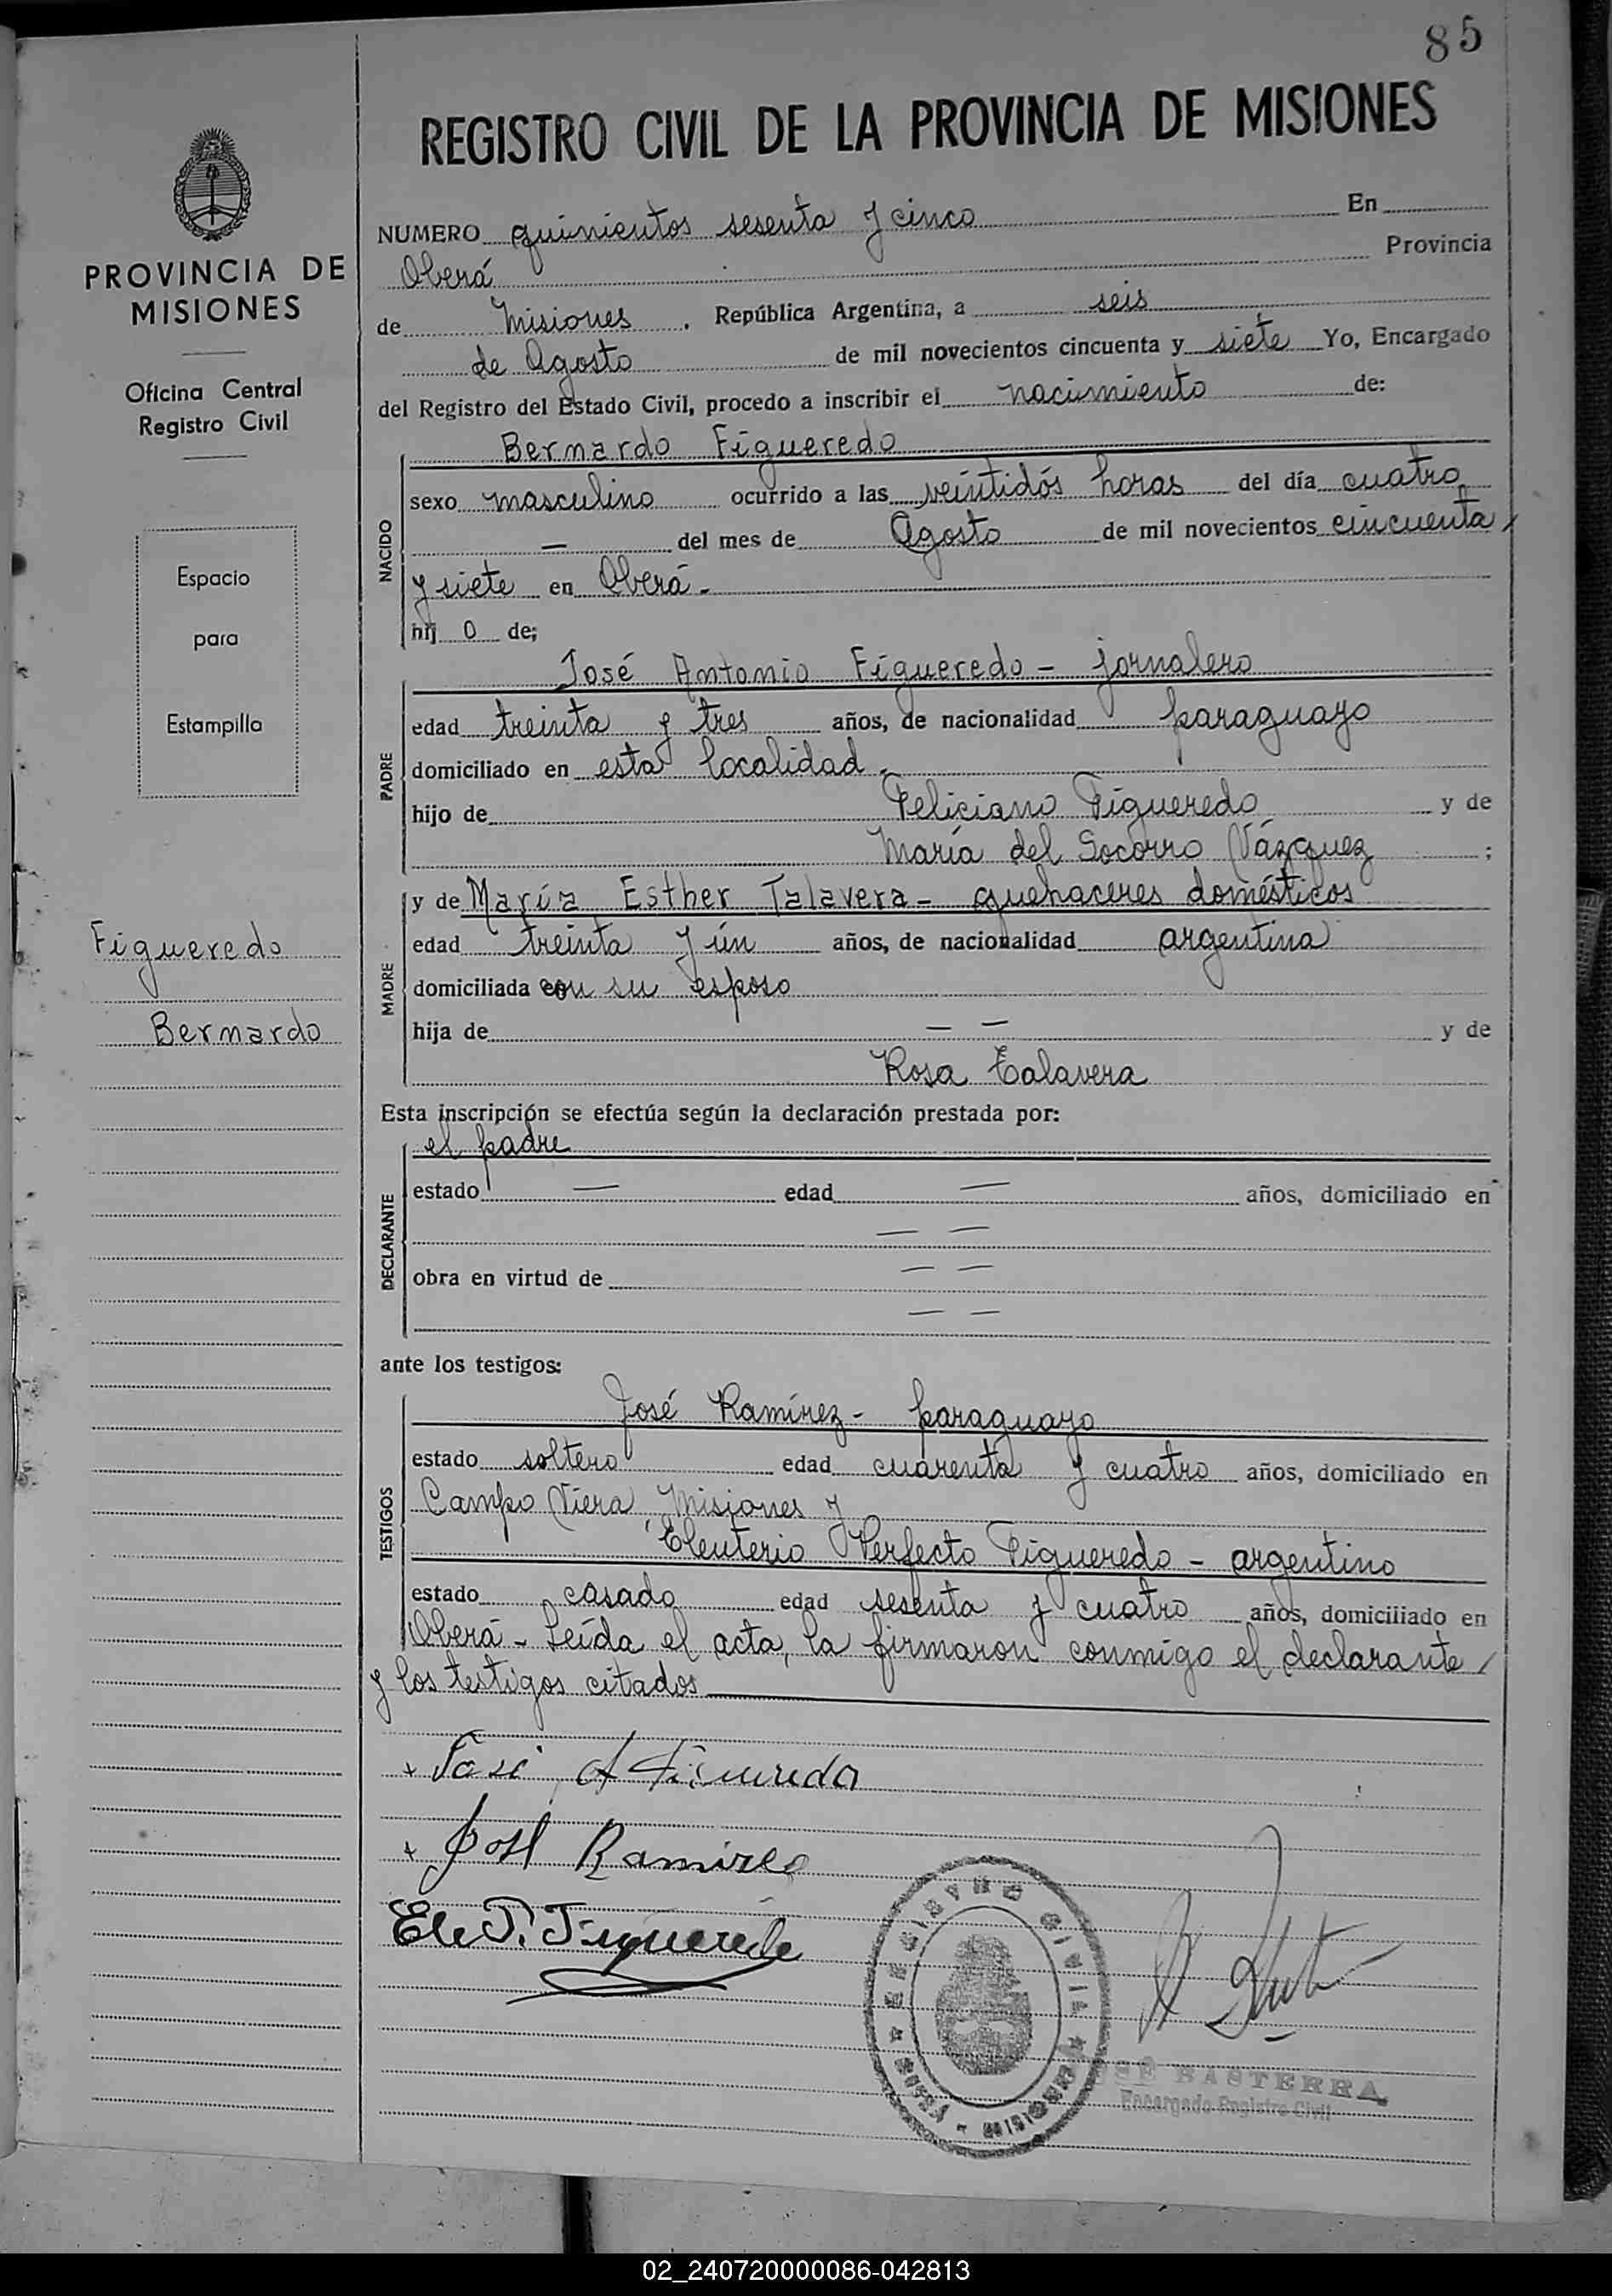 85
REGISTRO CIVIL DE LA PROVINCIA DE MISIONES
PROVINCIA DE
MISIONES
Oficina Central
Registro Civil
Espacio
para
Estampilla
Figueredo
Bernardo
NUMERO quinientos sesenta y cinco En
Oberá Provincia
de Misiones , República Argentina, a seis
de Agosto de mil novecientos cincuenta y siete Yo, Encargado
del Registro del Estado Civil, procedo a inscribir el nacimiento de:
NACIDO
Bernardo Figueredo
sexo masculino ocurrido a las veintidós horas del día cuatro
— del mes de Agosto de mil novecientos cincuenta /
y siete en Oberá.-
hij o de;
PADRE
José Antonio Figueredo - jornalero
edad treinta y tres años, de nacionalidad paraguayo
domiciliado en esta localidad.
hijo de Feliciano Figueredo y de
María del Socorro Vázquez ;
MADRE
y de María Esther Talavera - quehaceres domésticos
edad treinta y ún años, de nacionalidad argentina
domiciliada con su esposo
hija de — — y de
Rosa Talavera
Esta inscripción se efectúa según la declaración prestada por:
DECLARANTE
el padre
estado — edad — años, domiciliado en
— —
obra en virtud de — —
— —
ante los testigos:
TESTIGOS
José Ramírez - paraguayo
estado soltero edad cuarenta y cuatro años, domiciliado en
Campo Viera, Misiones y
Eleuterio Perfecto Figueredo - argentino
estado casado edad sesenta y cuatro años, domiciliado en
Oberá - Leída el acta, la firmaron conmigo el declarante /
y los testigos citados
José A Figueredo
José Ramirez
Ele P. Figueredo
REGISTRO CIVIL
MISIONES
BASTERRA
Encargado Registro Civil
02_240720000086-042813